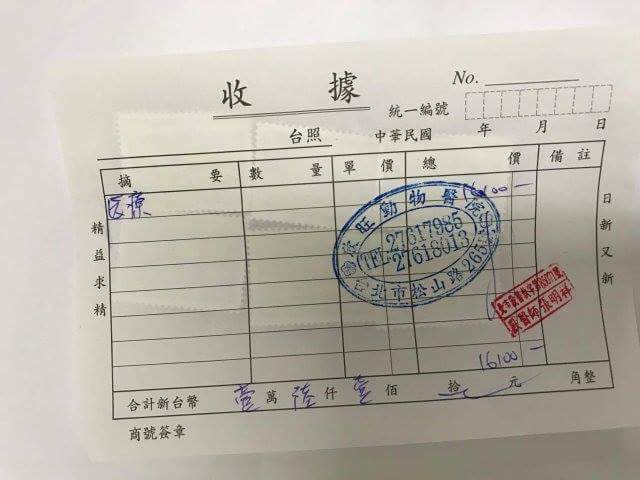 收據
No.
統一編號
台照 中華民國 年 月 日
摘要 數量 單價 總價 備註
医療 16100 —
旺動物醫院
TEL 27617985
27618013
台北市松山路
獸醫師張明祥
精益求精
日新又新
16100 —
合計新台幣 壹萬 陸仟 壹佰 拾 元 角整
商號簽章